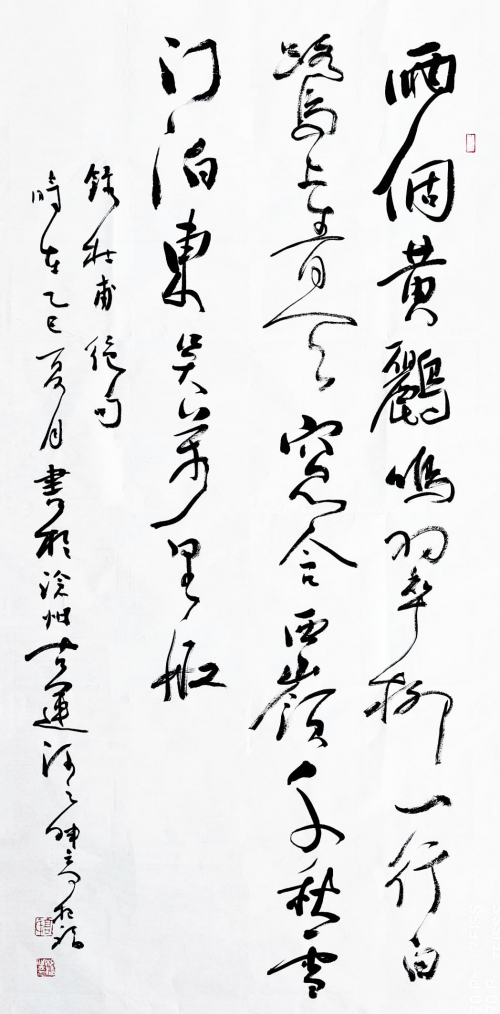 兩個黄鸝鳴翠柳一行白
鷺上青天窓含西嶺千秋雪
门泊東吴萬里船
録杜甫绝句
時在乙巳夏月書於滄州運河之畔